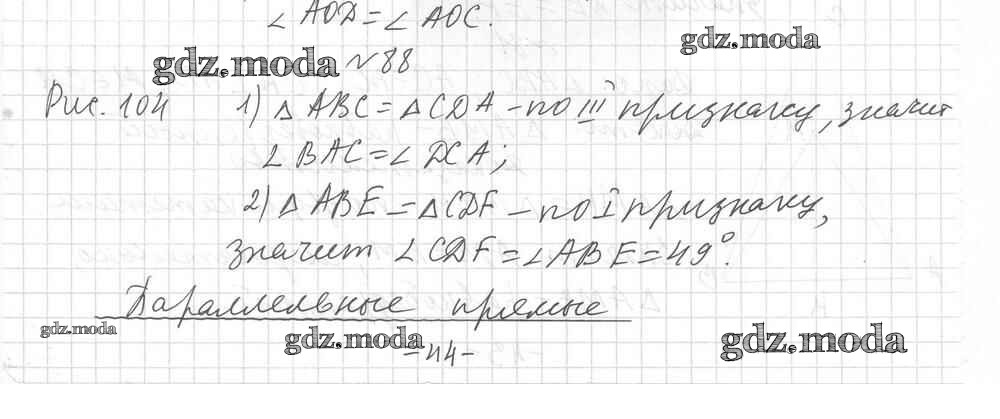 ∠AOD = ∠AOC.
gdz.moda
gdz.moda
№88
Рис. 104 1) △ABC = △CDA – по III признаку, значит
∠BAC = ∠DCA;
2) △ABE = △CDF – по I признаку,
значит ∠CDF = ∠ABE = 49°.
Параллельные прямые
gdz.moda
gdz.moda
-44-
gdz.moda